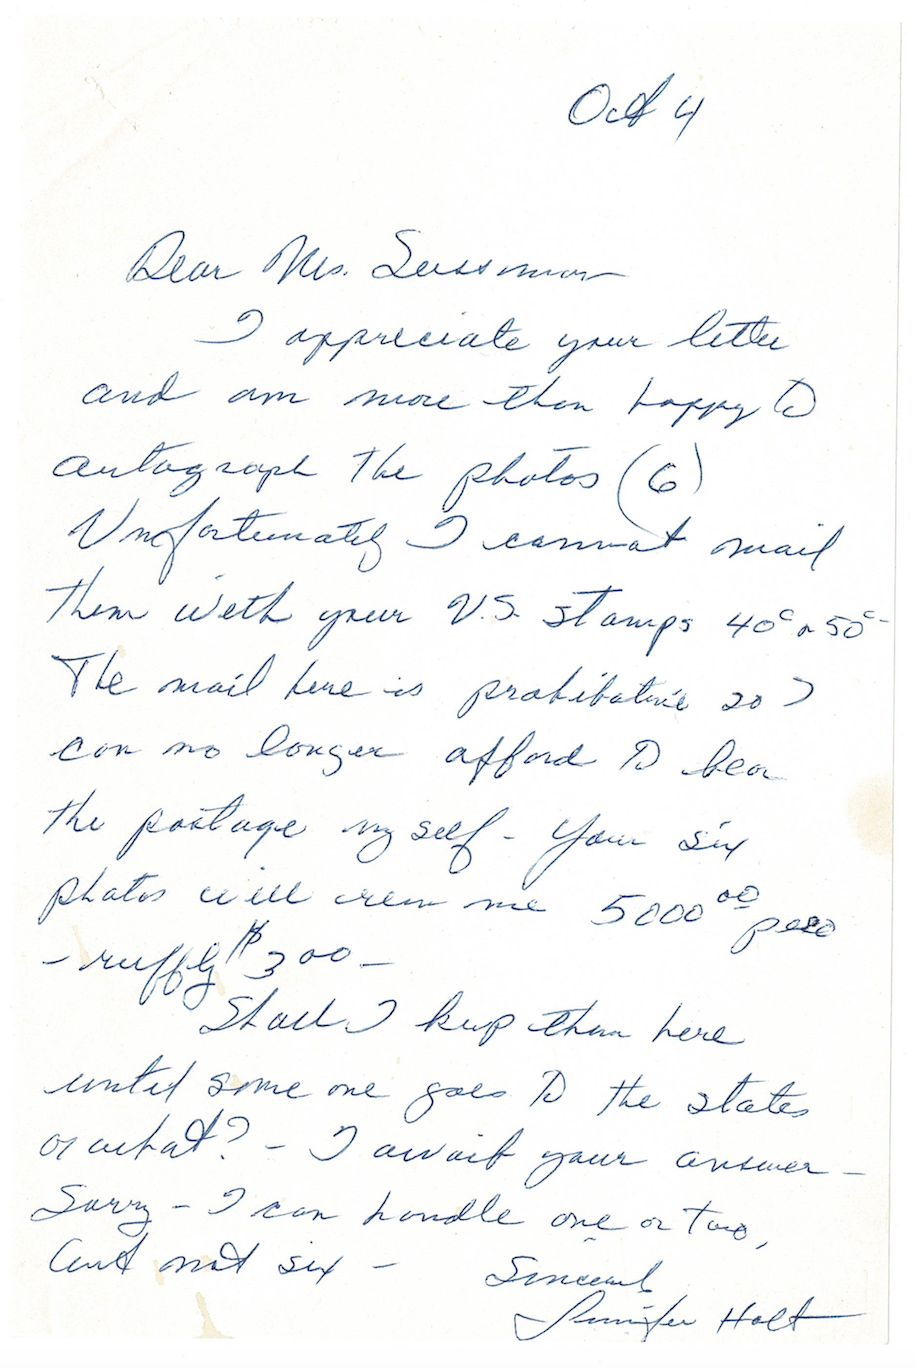 Oct 4
Dear Ms. Sussman
I appreciate your letter
and am more than happy to
autograph the photos (6)
Unfortunately I cannot mail
them with your U.S. stamps 40¢ or 50¢-
The mail here is prohibative so I
can no longer afford to bear
the postage myself - Your six
photos will me 5000⁰⁰ peso
- ruffly $3⁰⁰ -
Shall I keep them here
until some one goes to the states
or what? - I await your answer -
Sorry - I can handle one or two,
but not six - Sincerely
Jennifer Holt